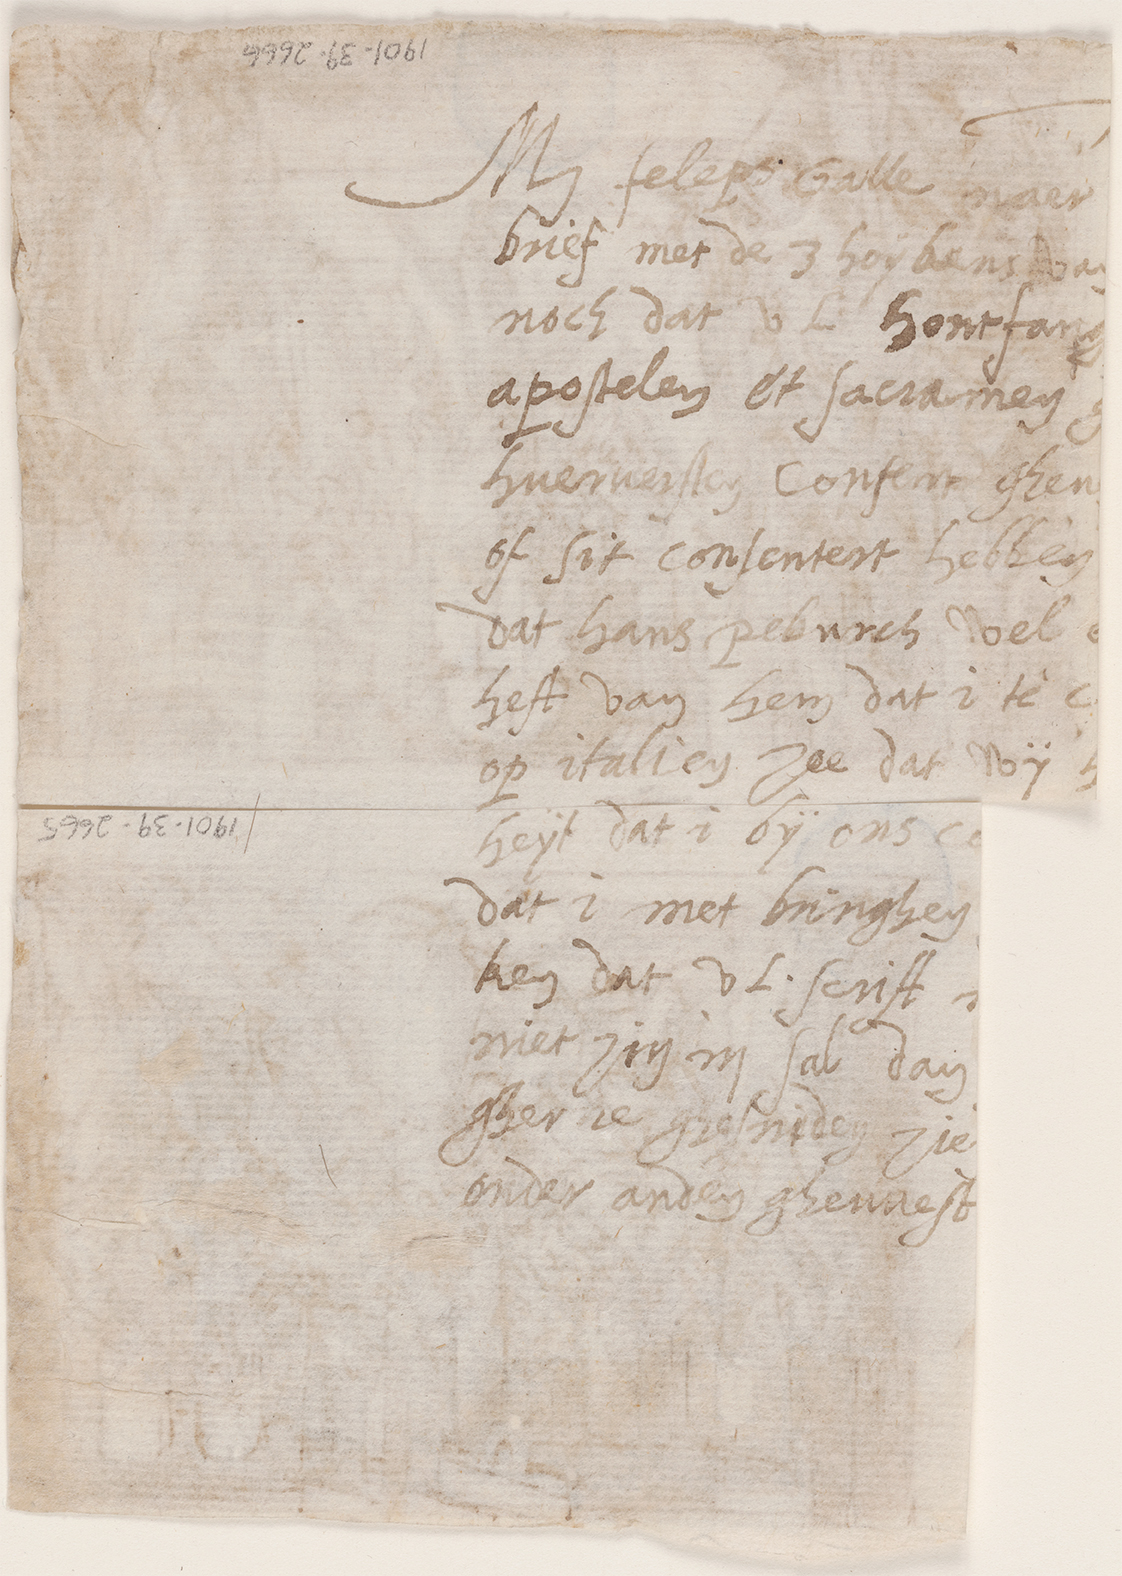 1901-39-2664
My feleps Galle naer
brief met de 3 hoÿkens van
noch dat v L hontfang
apostelen et sacramen
huerwersten Consent ghen
of sit consentert hebben
dat hans peburch wel
heft van hem dat i te c
op italien zoe dat wÿ h
1901-39-2665
heÿt dat i bÿ ons co
dat i met bringhen
ken dat v L. scrift
niet zin in sal dan
gher ie ghesniden zie
onder anden ghewest